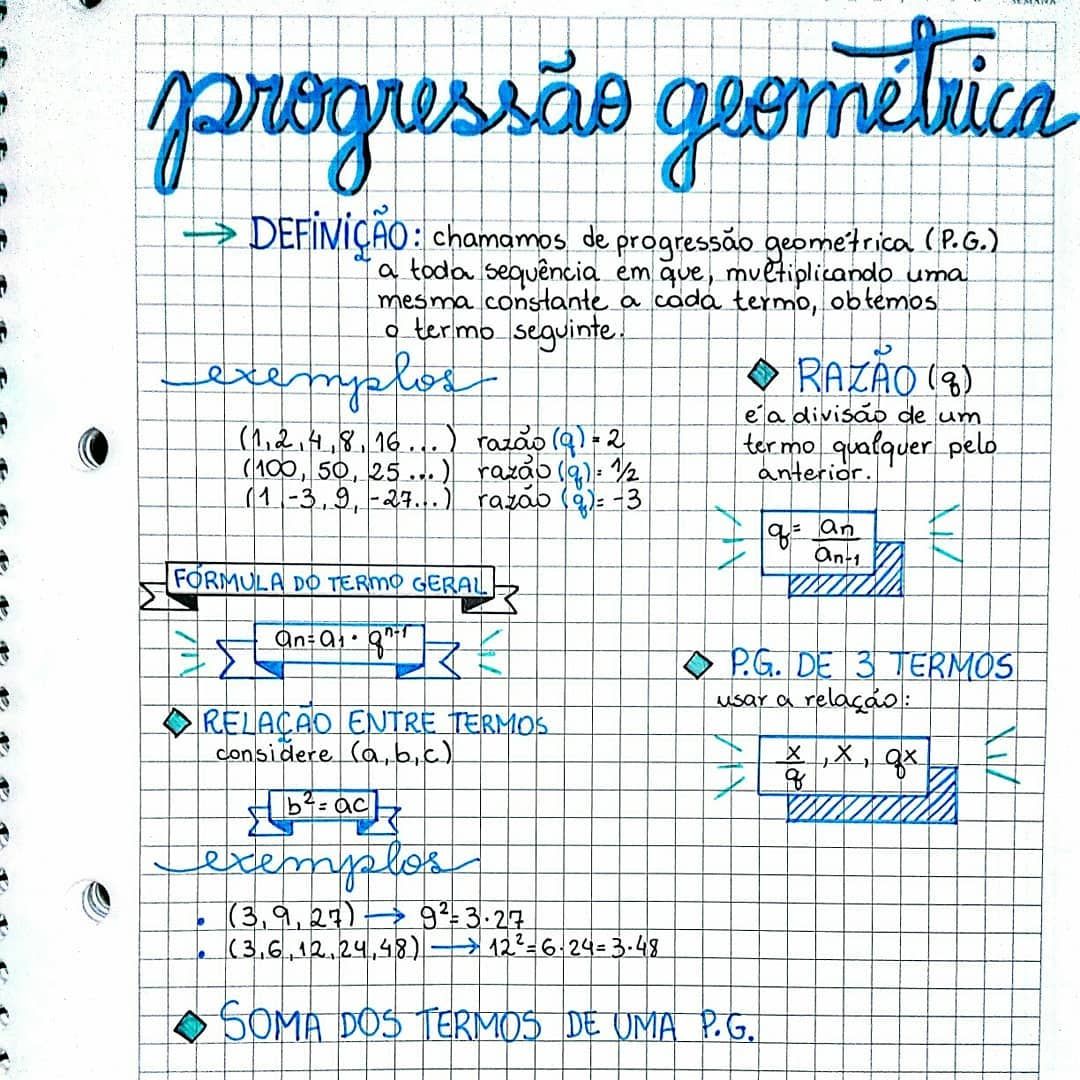 SEMANA
progressão geométrica
→ DEFINIÇÃO: chamamos de progressão geométrica (P.G.)
a toda sequência em que, multiplicando uma
mesma constante a cada termo, obtemos
o termo seguinte.
exemplos
(1, 2, 4, 8, 16 ...) razão (q) = 2
(100, 50, 25 ...) razão (q) = 1/2
(1, -3, 9, -27...) razão (q) = -3
RAZÃO (q)
é a divisão de um
termo qualquer pelo
anterior.
q = an / an-1
FÓRMULA DO TERMO GERAL
an = a1 · q^n-1
RELAÇÃO ENTRE TERMOS
considere (a, b, c)
b² = ac
P.G. DE 3 TERMOS
usar a relação:
x/q , x, qx
exemplos
• (3, 9, 27) → 9² = 3 · 27
• (3, 6, 12, 24, 48) → 12² = 6 · 24 = 3 · 48
SOMA DOS TERMOS DE UMA P.G.